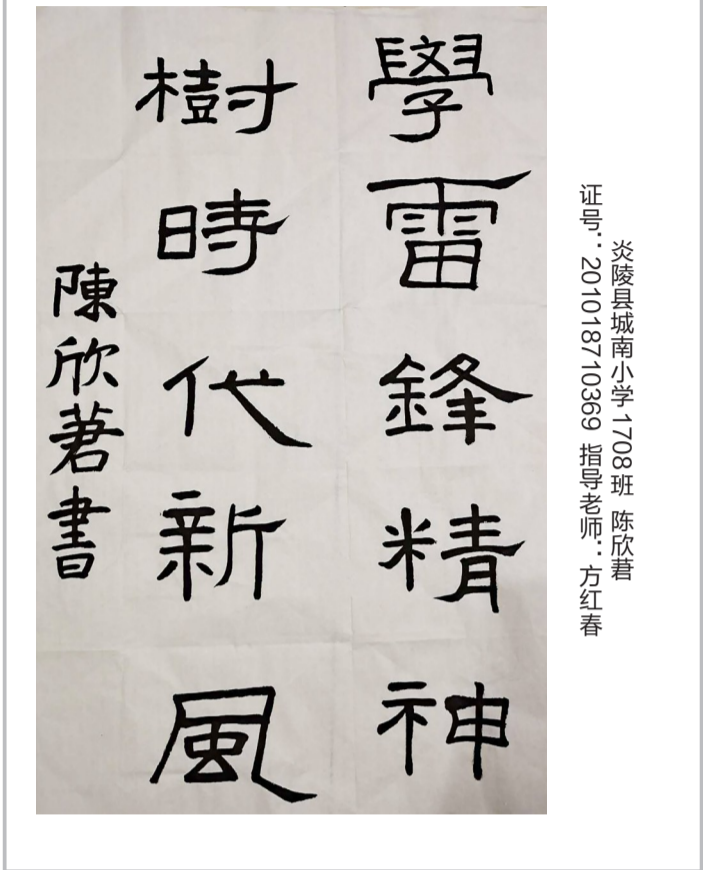 學雷鋒精神
樹時代新風
陳欣莙書
炎陵县城南小学1708班 陈欣莙
证号：201018710369 指导老师：方红春